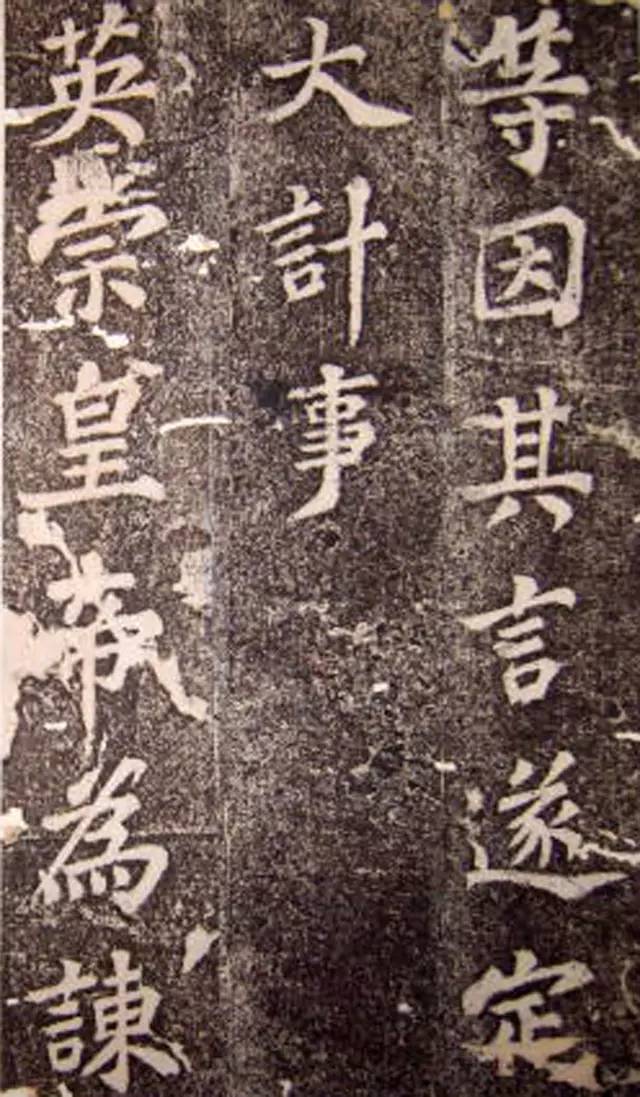 等因其言遂定
大計事
英崇皇執為諫